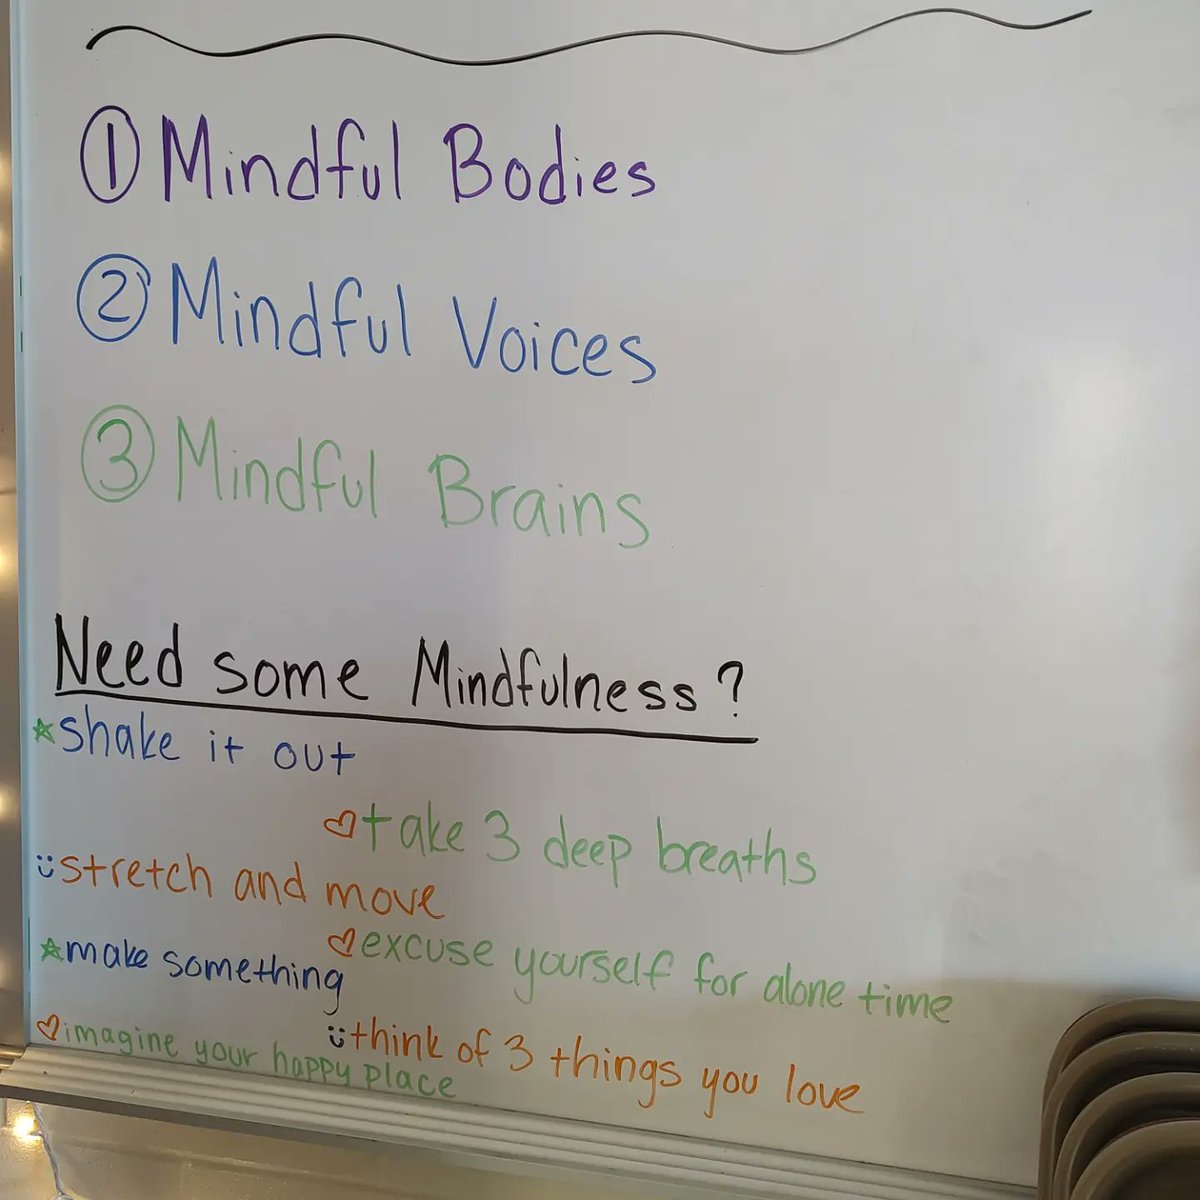 ① Mindful Bodies
② Mindful Voices
③ Mindful Brains
Need some Mindfulness?
shake it out
take 3 deep breaths
stretch and move
excuse yourself for alone time
make something
think of 3 things you love
imagine your happy place